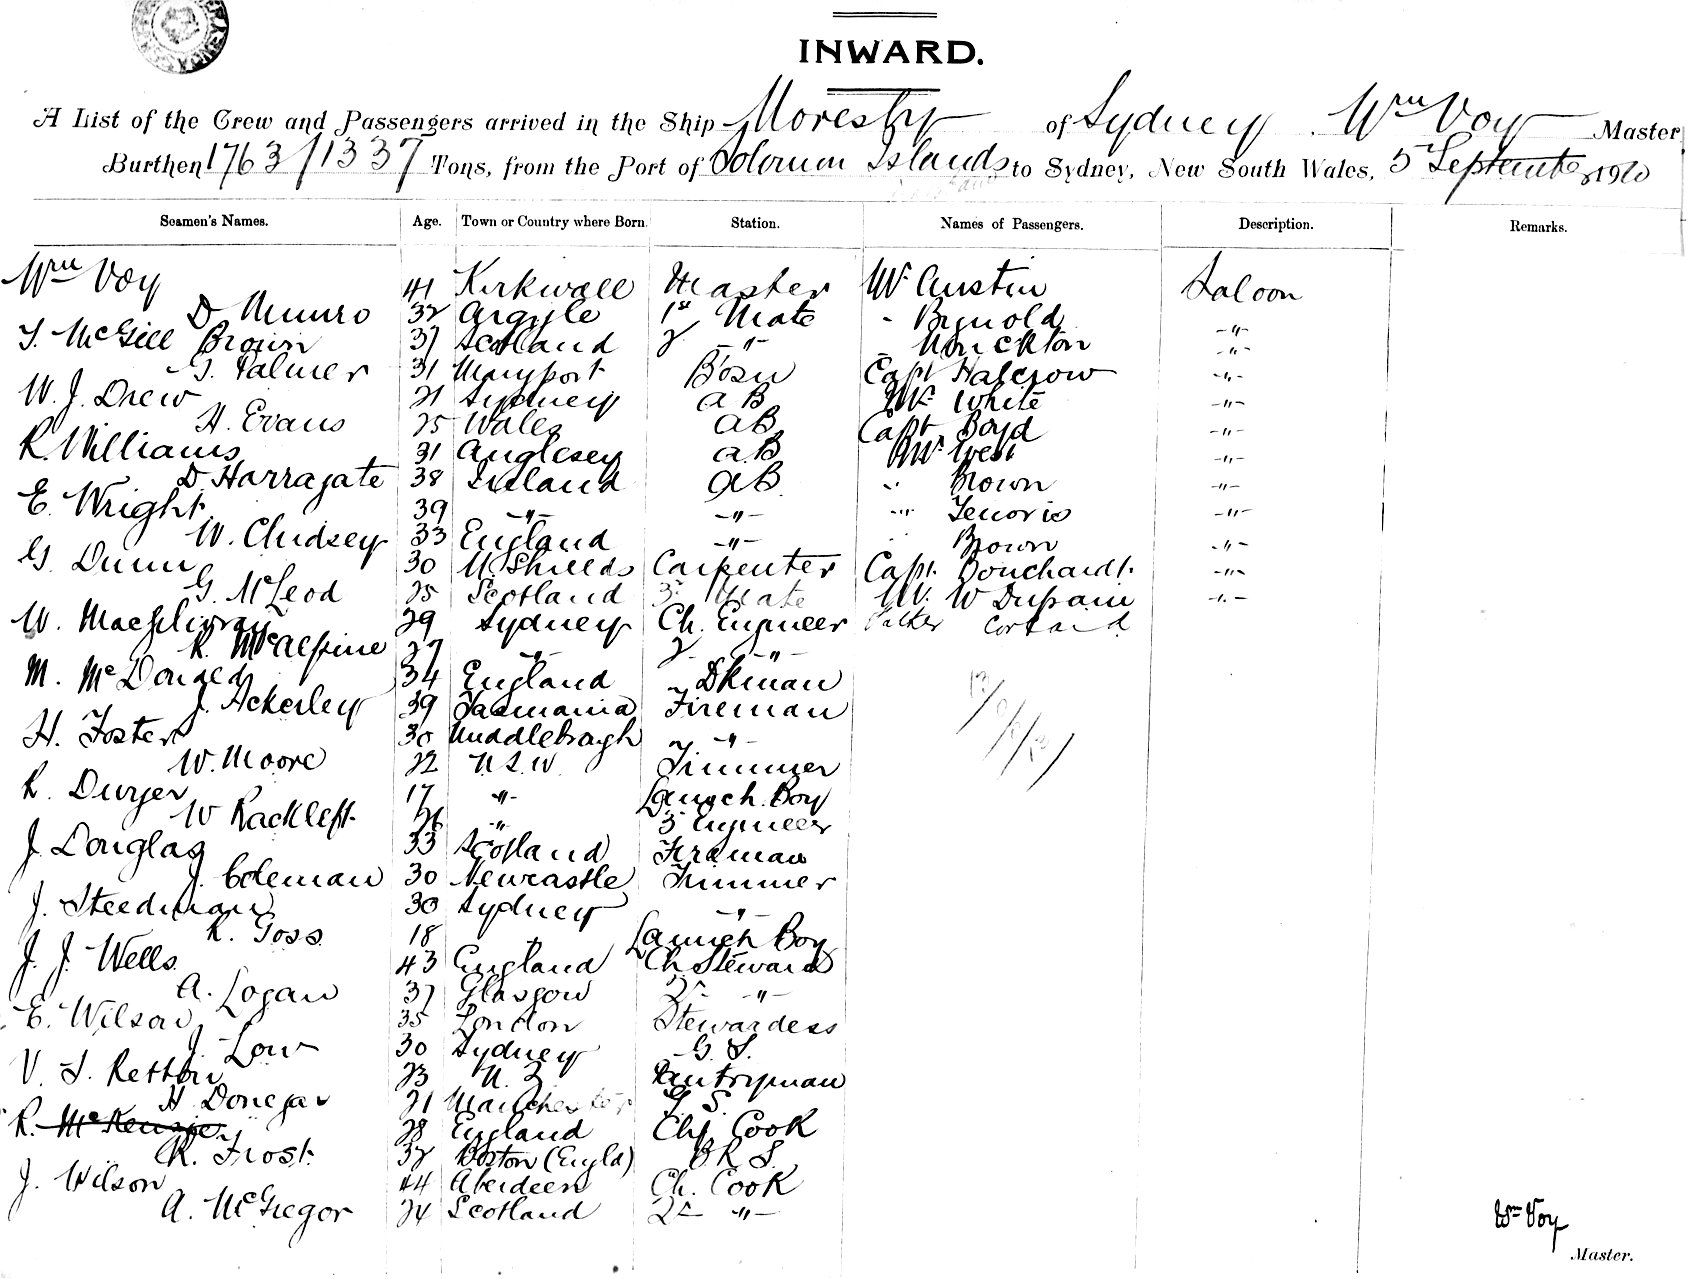 INWARD.
A List of the Crew and Passengers arrived in the Ship Moresby of Sydney Wm Voy Master
Burthen 1763/1337 Tons, from the Port of Solomon Islands to Sydney, New South Wales, 5 September 1910
Seamen's Names. Age. Town or Country where Born. Station. Names of Passengers. Description. Remarks.
Wm Voy 41 Kirkwall Master Mr Austin Saloon
D Munro 32 Argyle 1st Mate " -"-
T. McGill Brown 37 Scotland 2 -"- - Monckton -"-
G. Palmer 31 Maryport Bosn Capt Halcrow -"-
W. J. Drew 21 Sydney AB Mr White -"-
H. Evans 25 Wales AB Capt Boyd -"-
R. Williams 31 Anglesey AB Mr West -"-
D Harragate 38 Ireland AB " Brown -"-
E. Wright 39 -"- -"- " -"-
W. Chidsey 33 England -"- Brown -"-
G. Dunn 30 N. Shields Carpenter Capt. Bouchardt -"-
G. McLeod 25 Scotland 3 Mate Mr. W Dupain -"-
W. MacGlivray 29 Sydney Ch. Engineer
R. McAlpine 27 -"- 2 -"-
M. McDonald 34 England Dkman
J. Ackerley 39 Tasmania Fireman
H. Foster 30 Middlebragh -"-
W. Moore 22 N.S.W. Trimmer
R. Dwyer 17 -"- Launch Boy
W Rackleft 26 -"- 3 Engineer
J. Douglas 33 Scotland Fireman
J. Coleman 30 Newcastle Trimmer
J. Steedman 30 Sydney -"-
R. Goss 18 Launch Boy
J. J. Wells 43 England Ch Steward
A. Logan 37 Glasgow 2nd -"-
E. Wilson 35 London Stewardess
J. Low 30 Sydney G. S.
V. S. Retton 23 N. Z Pantryman
H Donegan 21 Manchester G. S.
R. McKenzie 28 England Chf Cook
R. Frost 32 Boston (Engld) B R S.
J. Wilson 44 Aberdeen Ch. Cook
A. McGregor 24 Scotland 2nd -"-
Wm Voy
Master.